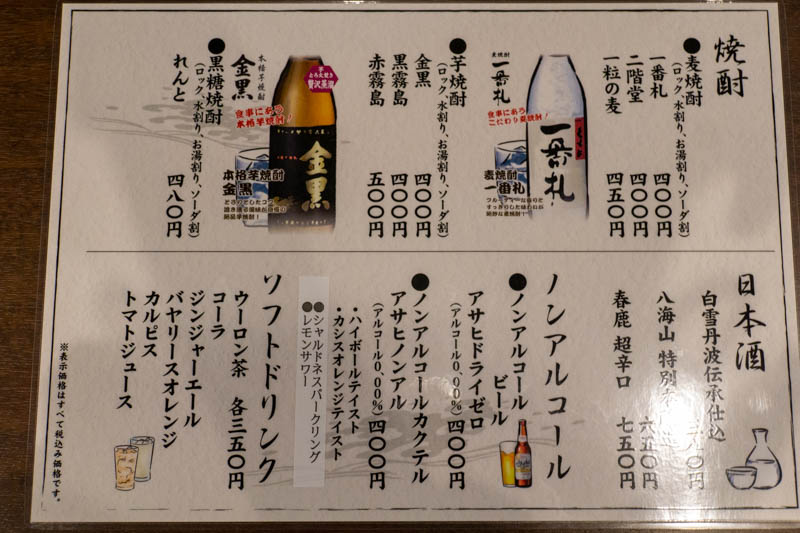 焼酎
●麦焼酎
(ロック、水割り、お湯割り、ソーダ割)
一番札 四〇〇円
二階堂 四〇〇円
一粒の麦 四五〇円
一番札
麦焼酎
一番札
食事にあう
こだわり麦焼酎!
麦焼酎
一番札
フルーティーな香りと
すっきりした味わいが
絶妙な麦焼酎!
●芋焼酎
(ロック、水割り、お湯割り、ソーダ割)
金黒 四〇〇円
黒霧島 四〇〇円
赤霧島 五〇〇円
芋
とろ火炊き
贅沢蒸溜
金黒
本格芋焼酎
金黒
食事にあう
本格芋焼酎!
本格芋焼酎
金黒
●黒糖焼酎
(ロック、水割り、お湯割り、ソーダ割)
れんと 四八〇円
日本酒
白雪丹波伝承仕込
八海山 特別 六五〇円
春鹿 超辛口 七五〇円
ノンアルコール
●ノンアルコール
ビール
アサヒドライゼロ
(アルコール0.00%) 四〇〇円
●ノンアルコールカクテル
アサヒノンアル
(アルコール0.00%) 四〇〇円
・ハイボールテイスト
・カシスオレンジテイスト
●シャルドネスパークリング
●レモンサワー
ソフトドリンク
ウーロン茶 各三五〇円
コーラ
ジンジャーエール
バヤリースオレンジ
カルピス
トマトジュース
※表示価格はすべて税込み価格です。